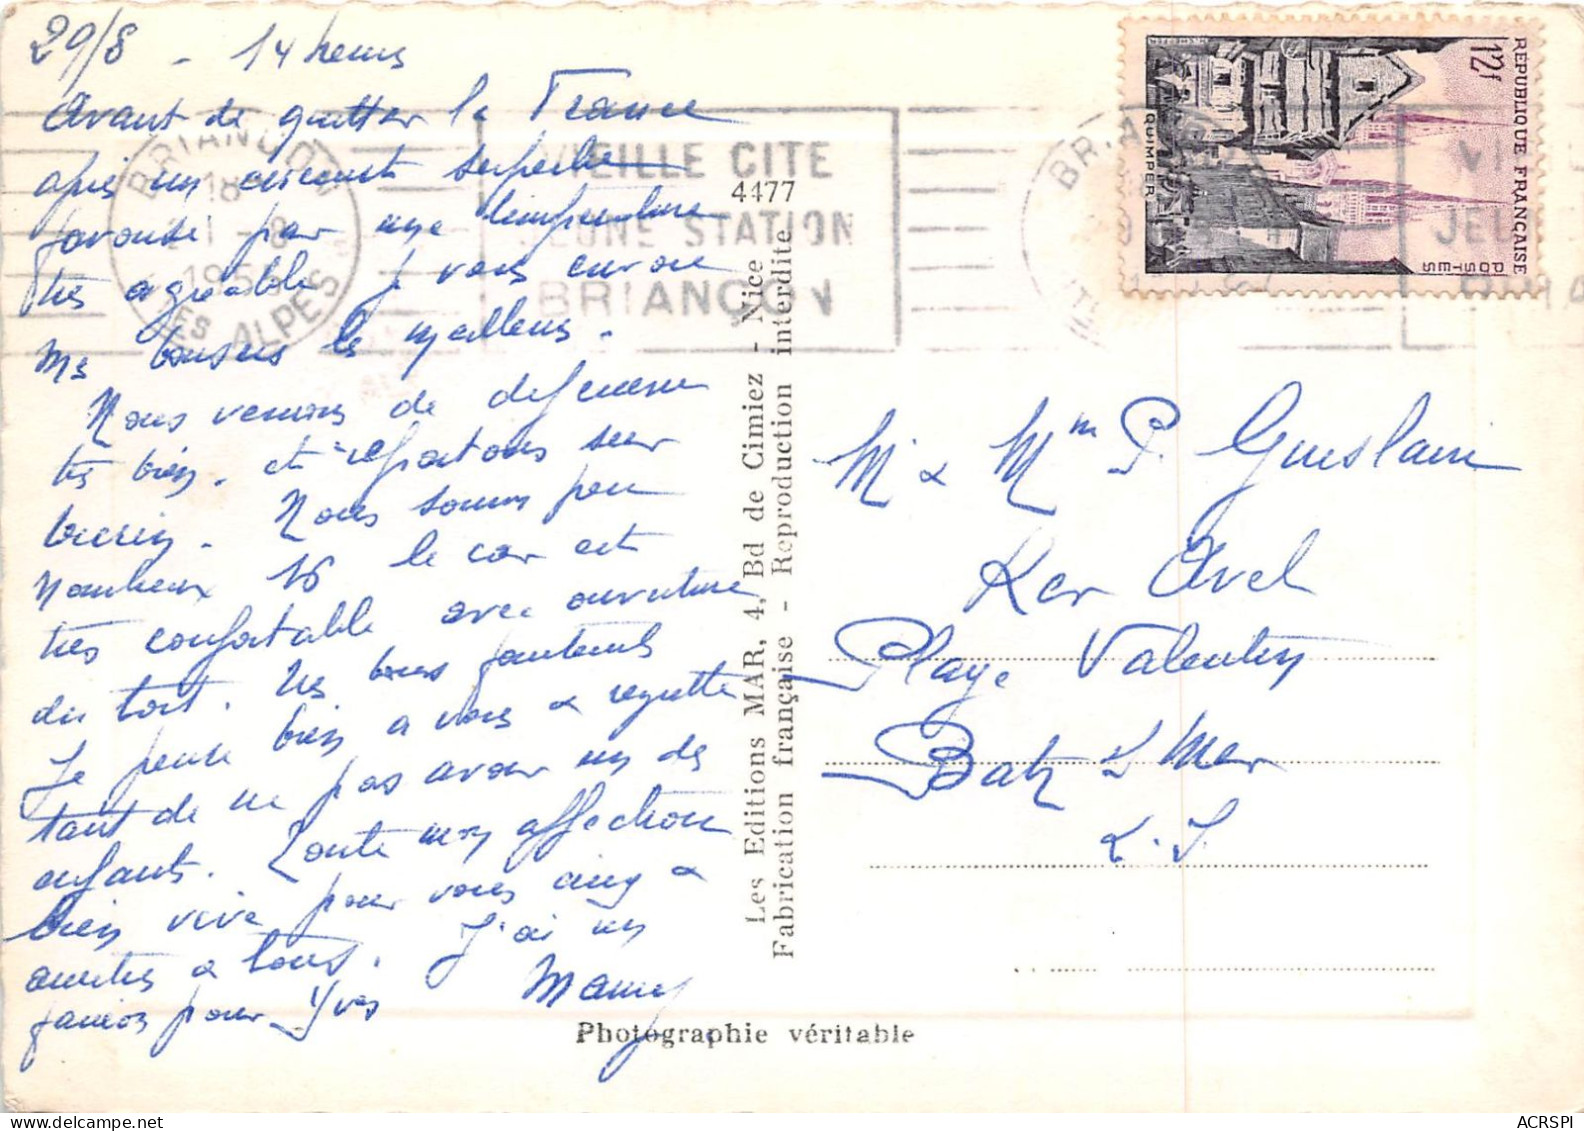 29/8 - 14 heures
Avant de quitter la France
après un circuit superbe
favorisé par une température
très agréable je vous envoie
mes baisers les meilleurs.
Nous venons de déjeuner
très bien. et repartons sur
Nous sommes peu
nombreux 16 le car est
très confortable avec ouverture
du toit. des bons fauteuils
Je pense bien a vous & regrette
tant de ne pas avoir un des
enfants. Toute mon affection
bien vive pour vous cinq &
amitiés a tous. J'ai un
fanion pour Yves Mamy
BRIANÇON
18
-8
195
HTES ALPES
VIEILLE CITE
JEUNE STATION
BRIANÇON
4477
Les Editions MAR, 4, Bd de Cimiez - Nice
Fabrication française - Reproduction interdite
REPUBLIQUE FRANÇAISE
POSTES
12f
QUIMPER
M & Mme P. Guislain
Ker Avel
Plage Valentin
Batz s/ Mer
L. I.
Photographie véritable
ACRSPI